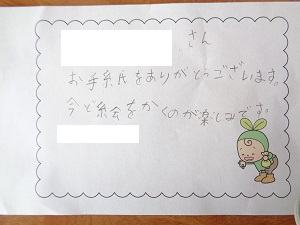 さん
お手紙をありがとうございます。
今ど絵をかくのが楽しみです。